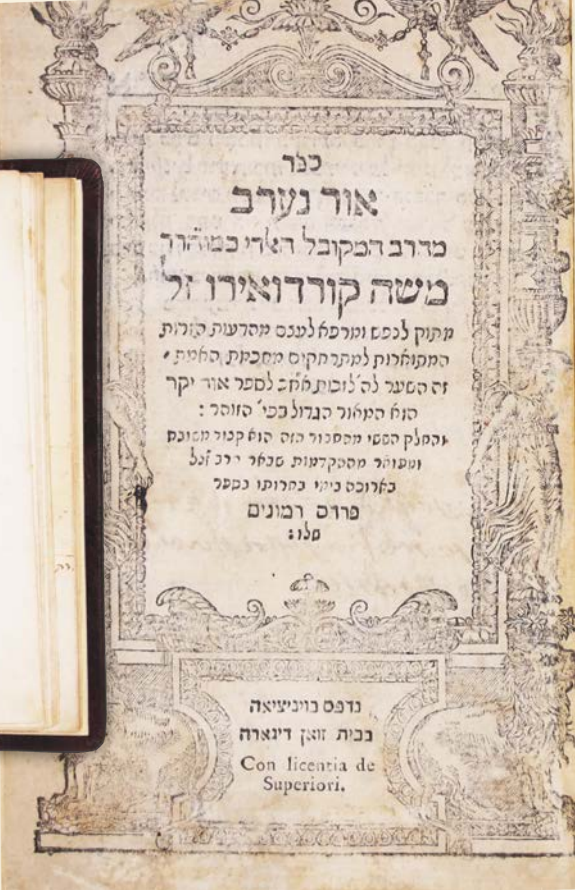 ספר
אור נערב
מהרב המקובל האלקי כמוהרר
משה קורדואירו זל
מתוק לנפש ומרפא לעצם מהדעות הזרות
המתוארות למתרחקים מחכמת האמת
זה השער לה' לזכות את לספר אור יקר
הוא המאור הגדול בפי' הזוהר :
והחלק הששי מהחבור הזה הוא קצור משובח
ומעותר מההקדמות שבאר הרב זכל
בארוכה בימי בחרותו בספר
פרדס רמונים
שלו :
נדפס בויניציאה
בבית זואן דיגארה
Con licentia de
Superiori.